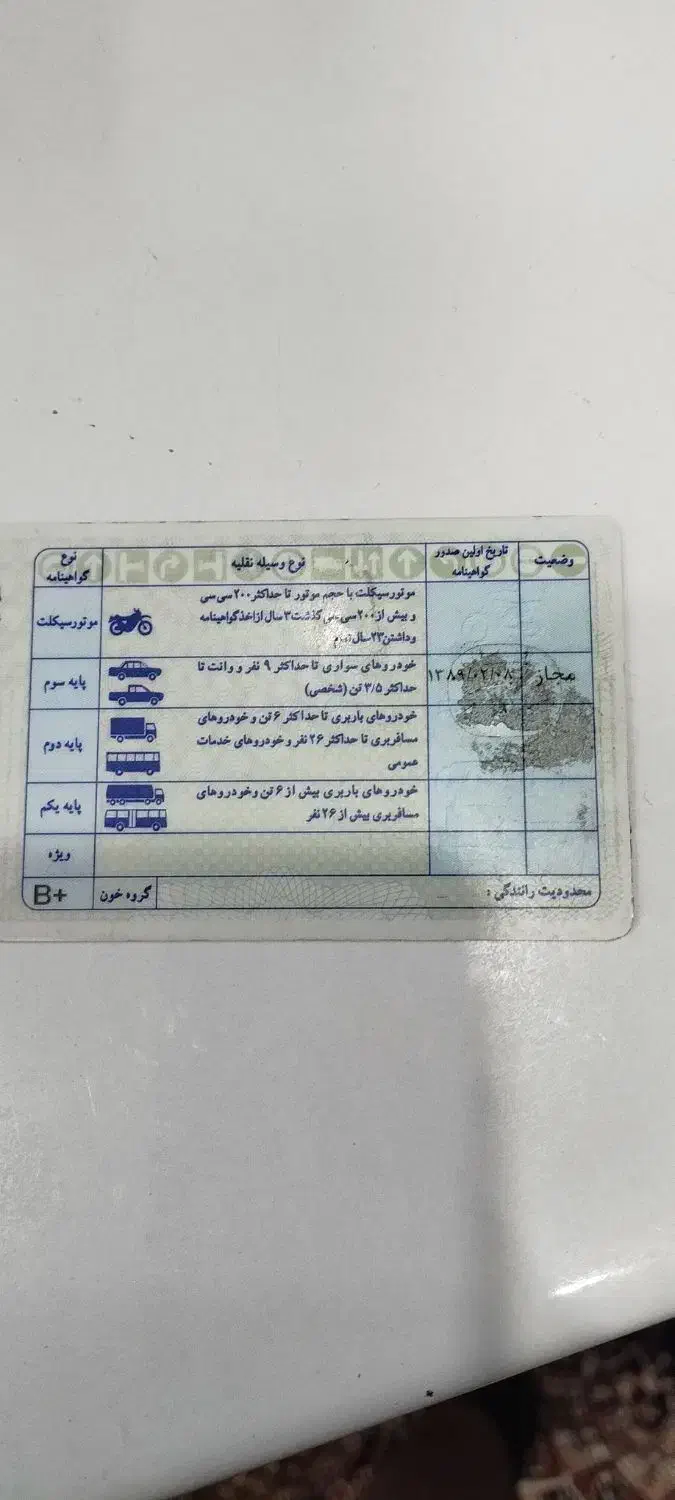 نوع گواهینامه
نوع وسیله نقلیه
تاریخ اولین صدور گواهینامه
وضعیت
موتورسیکلت
موتورسیکلت با حجم موتور تا حداکثر ۲۰۰ سی سی
و بیش از ۲۰۰ سی سی گذشت ۳ سال از اخذ گواهینامه
وداشتن ۲۳ سال تمام
پایه سوم
خودروهای سواری تا حداکثر ۹ نفر و وانت تا
حداکثر ۳/۵ تن (شخصی)
۱۳۸۹/۰۲/۰۸
مجاز
پایه دوم
خودروهای باربری تا حداکثر ۶ تن و خودروهای
مسافربری تا حداکثر ۲۶ نفر و خودروهای خدمات
عمومی
پایه یکم
خودروهای باربری بیش از ۶ تن وخودروهای
مسافربری بیش از ۲۶ نفر
ویژه
B+
گروه خون
محدودیت رانندگی :